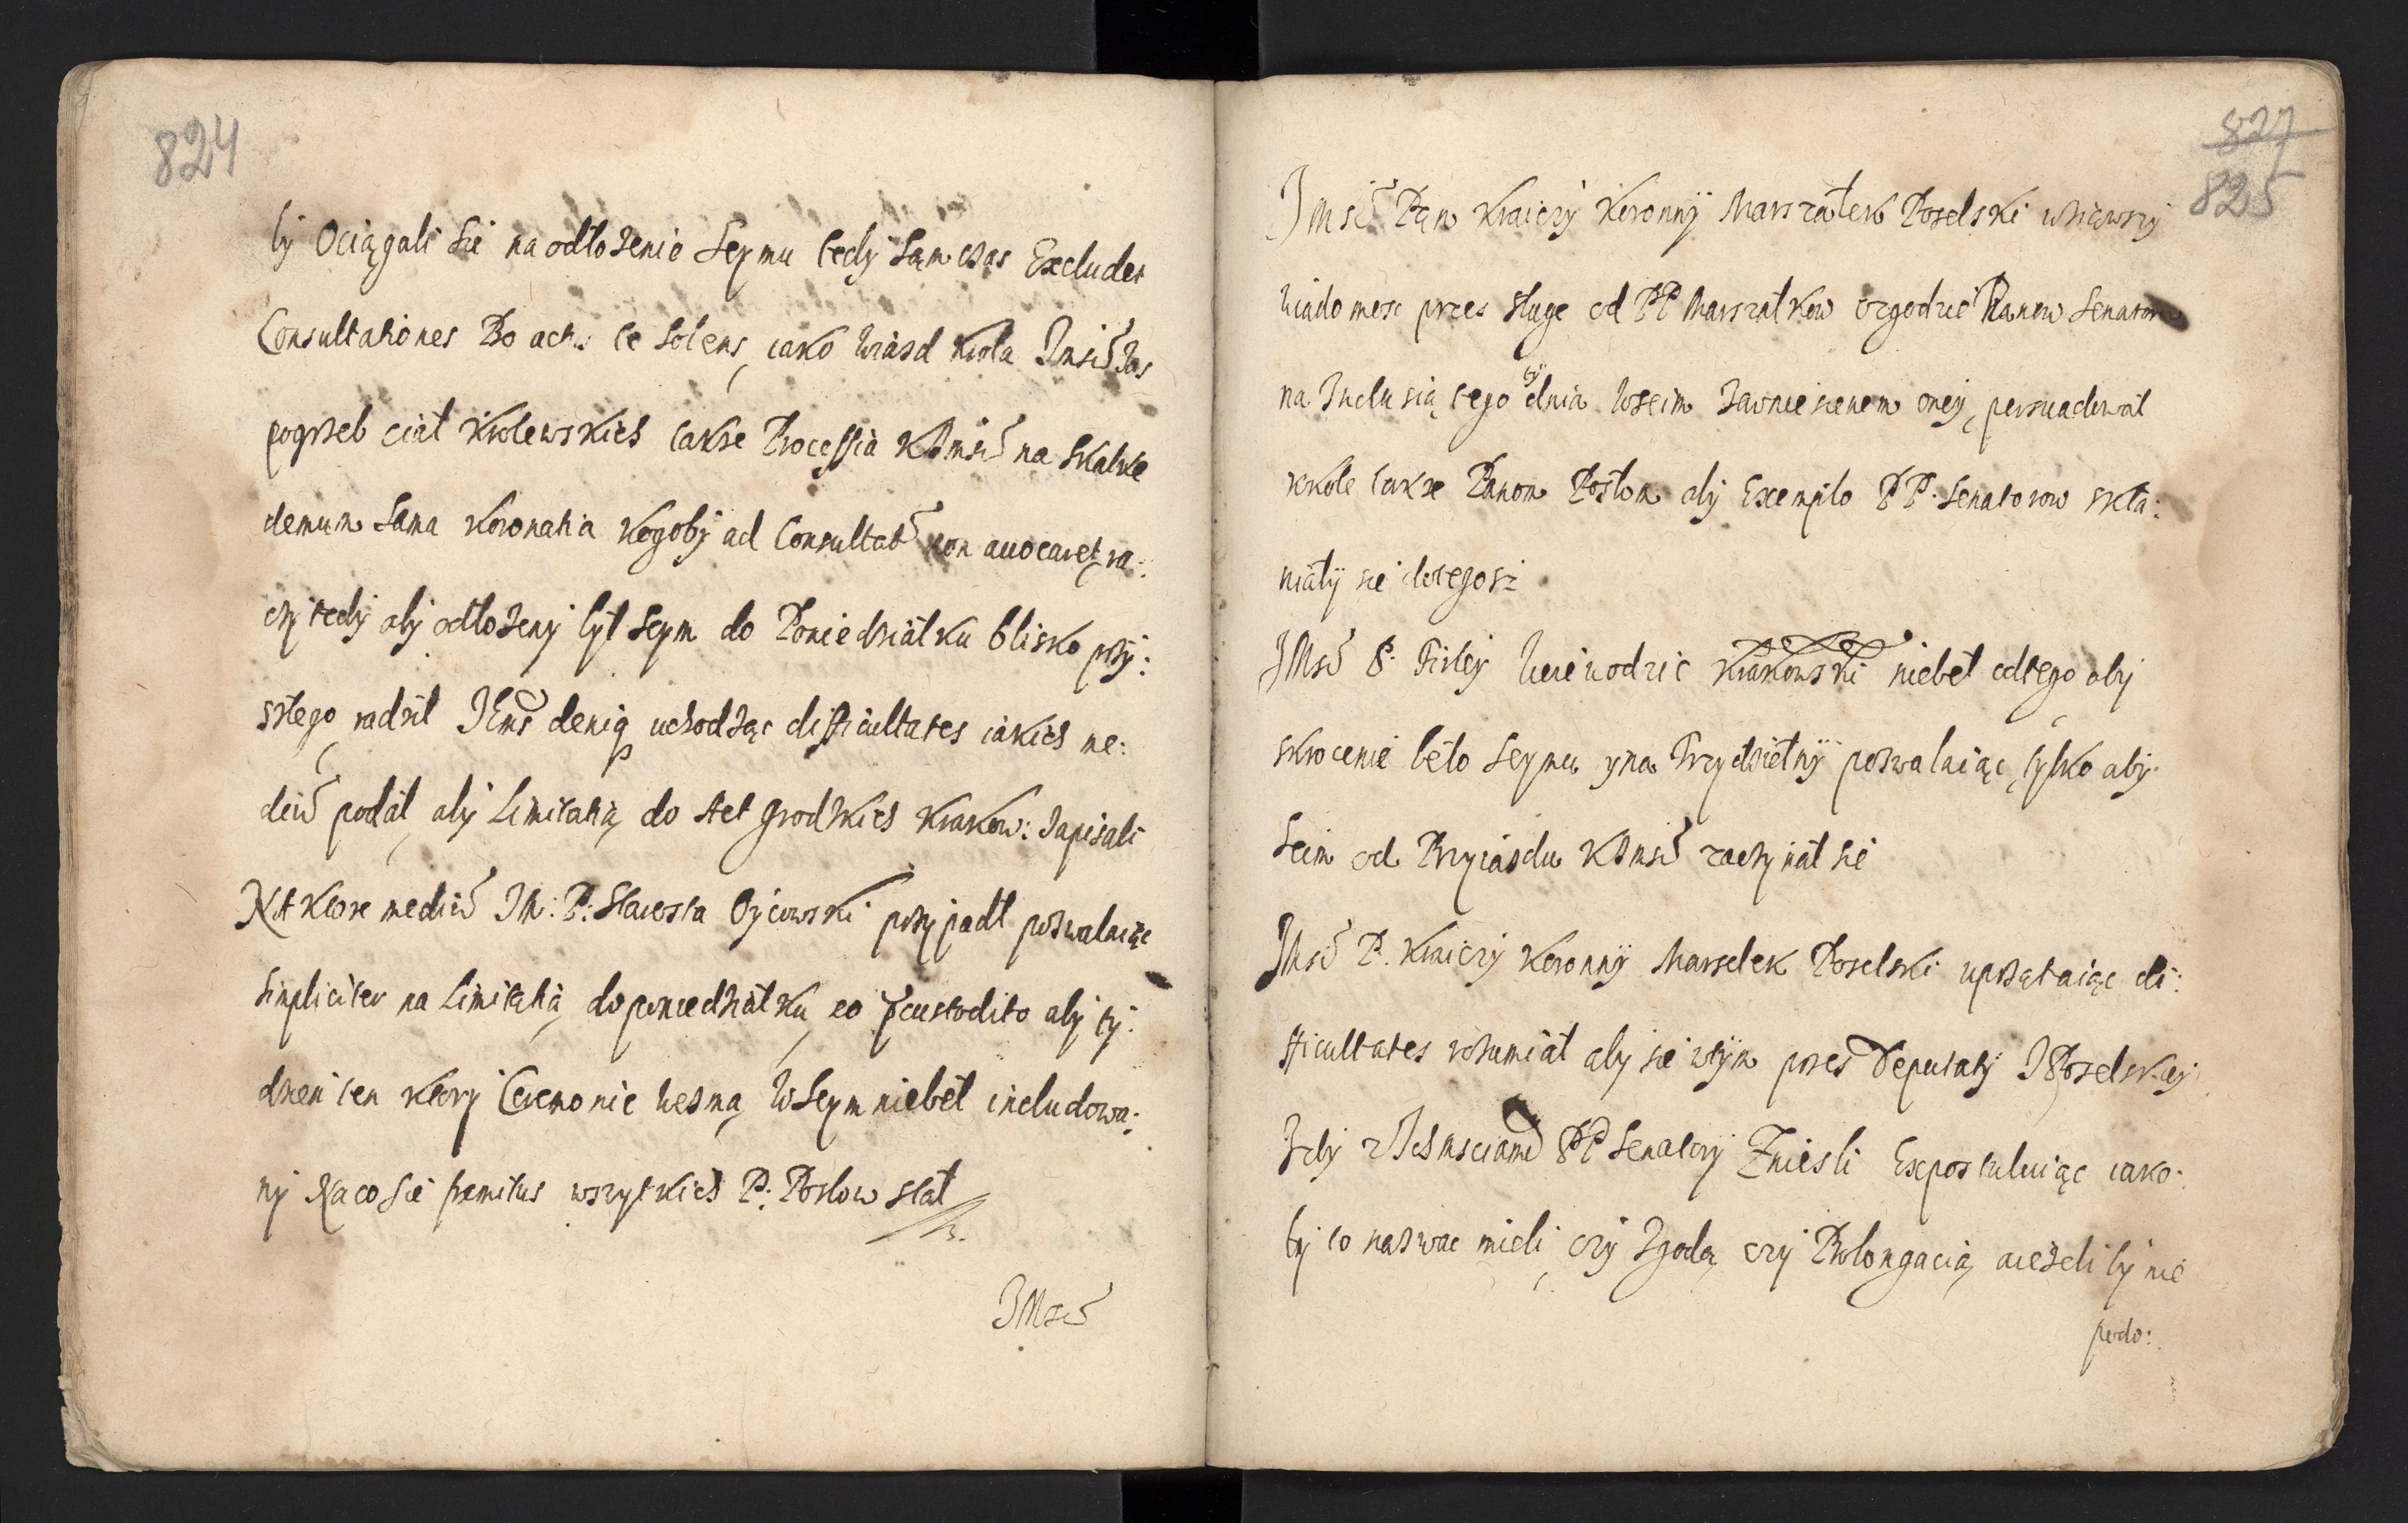 824
by Ociągali się na odłożenie Seymu tedy sam czas Excludet
Consultationes Bo actus te solens, iako wiazd Krola Jmści
pogrzeb ciał Krolewskich takze Processia KJmści na Skałke
demum sama Koronatia kogoby ad Consultat non auocaret, ra:
czy tedy aby odłozeny był Seym do Poniedziałku blisko przy:
szłego, radził Jchms deniq uchodząc difficultates iakich me:
diū podał, aby Limitatią do Act Grodzkich Krakow: zapisali
NA ktore mediū JM: P: Starosta Oycowski przypadł pozwalaiąc
simpliciter na Limitatią do poniedziałku, eo pcustodito aby ty:
dzień ten ktory Ceremonie wezmą, w Seym niebeł includowa:
ny Na co sie penitus wszytkich P: Posłow stał
JMści
827
825
JMści Pan Kraiczy Koronny Marszałek Poselski wziąwszy
wiadomosc przez sługe od PP Marszałkow o zgodzie Panow Senatorow
na Inclusią tego dnia w Seim z zawnieseniem oney, persuadował
kole takze Panom Posłom aby Exemplo PP. Senatorow skła:
niały sie do tegosz
JMści P. Firley Woiewodzic Krakowski niebeł od tego aby
skrocenie beło Seymu y na Trzydzielny pozwalaiąc, tylko aby
Seim od Przyiazdu KJmści zaczynał sie
JMści P. Kraiczy Koronny Marszelek Poselski uprzątaiąc di:
fficultates rozumiał aby sie w tym przez Deputaty J Poselskiey
Izby z Ichmsciami PP Senatory Znieśli Expostuluiąc iako:
by to nazwac mieli, czy Zgodą czy Prolongacią, a ieżeli by nie
podo: